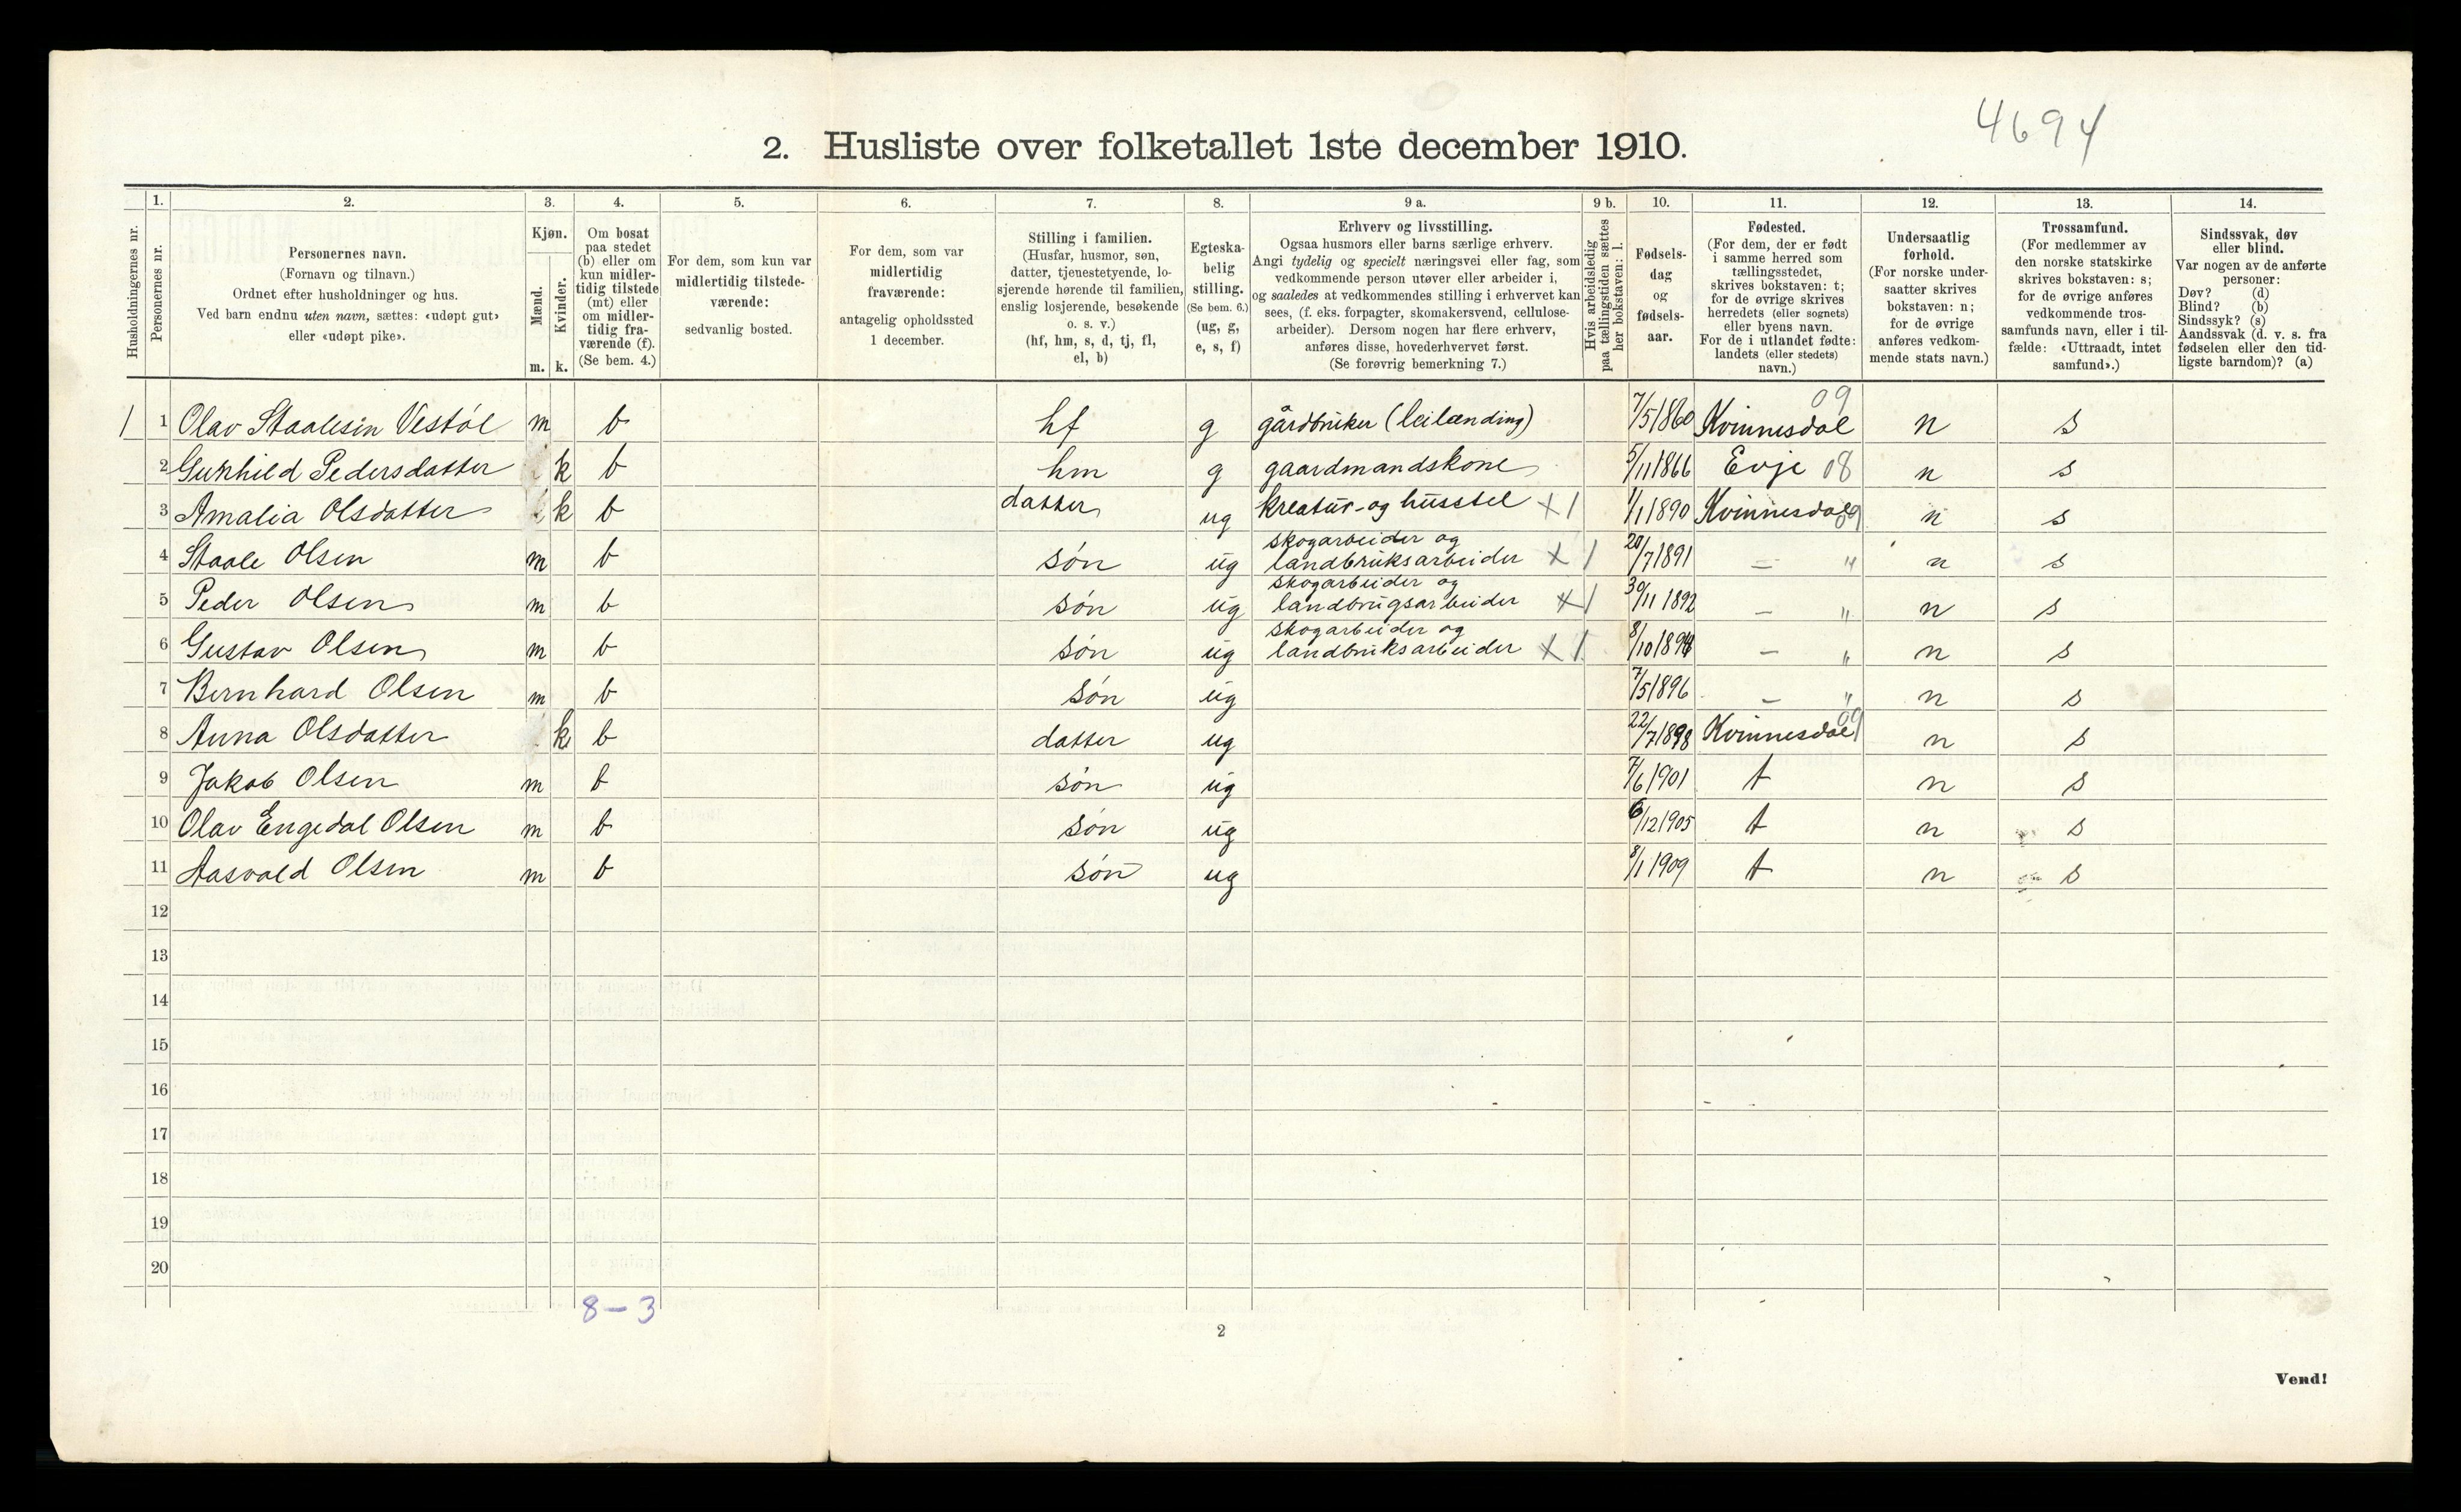 4694
2. Husliste over folketallet 1ste december 1910.
1. 2. 3. 4. 5. 6. 7. 8. 9 a. 9 b. 10. 11. 12. 13. 14.
Husholdningernes nr.
Personernes nr.
Personernes navn.
(Fornavn og tilnavn.)
Ordnet efter husholdninger og hus.
Ved barn endnu uten navn, sættes: «udøpt gut»
eller «udøpt pike».
Kjøn.
Mænd.
Kvinder.
m. k.
Om bosat
paa stedet
(b) eller om
kun midler-
tidig tilstede
(mt) eller
om midler-
tidig fra-
værende (f).
(Se bem. 4.)
For dem, som kun var
midlertidig tilstede-
værende:
sedvanlig bosted.
For dem, som var
midlertidig
fraværende:
antagelig opholdssted
1 december.
Stilling i familien.
(Husfar, husmor, søn,
datter, tjenestetyende, lo-
sjerende hørende til familien,
enslig losjerende, besøkende
o. s. v.)
(hf, hm, s, d, tj, fl,
el, b)
Egteska-
belig
stilling.
(Se bem. 6.)
(ug, g,
e, s, f)
Erhverv og livsstilling.
Ogsaa husmors eller barns særlige erhverv.
Angi tydelig og specielt næringsvei eller fag, som
vedkommende person utøver eller arbeider i,
og saaledes at vedkommendes stilling i erhvervet kan
sees, (f. eks. forpagter, skomakersvend, cellulose-
arbeider). Dersom nogen har flere erhverv,
anføres disse, hovederhvervet først.
(Se forøvrig bemerkning 7.)
Hvis arbeidsledig
paa tællingstiden sættes
her bokstaven: l.
Fødsels-
dag
og
fødsels-
aar.
Fødested.
(For dem, der er født
i samme herred som
tællingsstedet,
skrives bokstaven: t;
for de øvrige skrives
herredets (eller sognets)
eller byens navn.
For de i utlandet fødte:
landets (eller stedets)
navn.)
Undersaatlig
forhold.
(For norske under-
saatter skrives
bokstaven: n;
for de øvrige
anføres vedkom-
mende stats navn.)
Trossamfund.
(For medlemmer av
den norske statskirke
skrives bokstaven: s;
for de øvrige anføres
vedkommende tros-
samfunds navn, eller i til-
fælde: «Uttraadt, intet
samfund».)
Sindssvak, døv
eller blind.
Var nogen av de anførte
personer:
Døv? (d)
Blind? (b)
Sindssyk? (s)
Aandssvak (d. v. s. fra
fødselen eller den tid-
ligste barndom)? (a)
1 1 Olav Staalesen Vestøl m b hf g gårdbruker (leilænding) 7/5 1860 Kvinnesdal 09 n s
2 Gunhild Pedersdatter k b hm g gaardmandskone 5/11 1866 Evje 08 n s
3 Amalia Olsdatter k b datter ug kreatur- og husstel X 1 1/1 1890 Kvinnesdal 09 n s
4 Staale Olsen m b søn ug skogarbeider og landbruksarbeider X 1 20/7 1891 — " n s
5 Peder Olsen m b søn ug skogarbeider og landbrugsarbeider X 1 30/11 1892 — " n s
6 Gustav Olsen m b søn ug skogarbeider og landbruksarbeider X 1 8/10 1894 — " n s
7 Bernhard Olsen m b søn ug 7/5 1896 — " n s
8 Anna Olsdatter k b datter ug 22/7 1898 Kvinnesdal 09 n s
9 Jakob Olsen m b søn ug 7/6 1901 t n s
10 Olav Engedal Olsen m b søn ug 6/12 1905 t n s
11 Aasvald Olsen m b søn ug 8/1 1909 t n s
12
13
14
15
16
17
18
19
20
8 – 3
2
Vend!